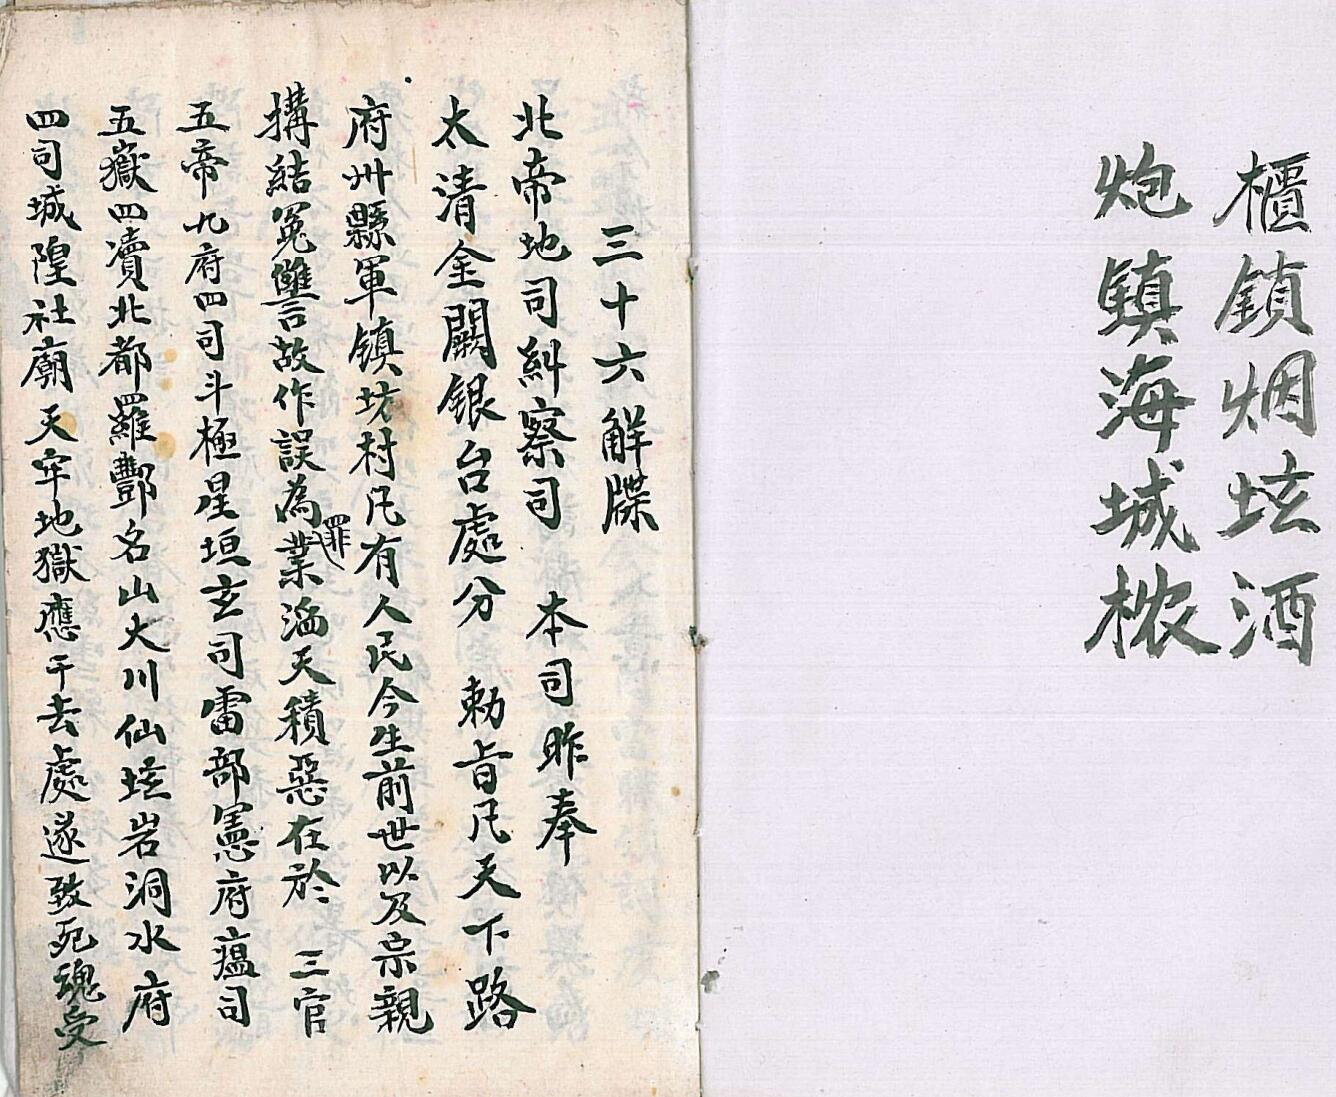 櫃鎖烟坛酒
炮鎮海城
三十六解牒
北帝地司糾察司　本司昨奉
太清金闕銀台處分　勅旨凡天下路
府州縣軍鎮坊村凡有人民今生前世以及宗親
搆結冤讐故作誤為業罪滔天積惡在於　三官
五帝九府四司斗極星垣玄司雷部憲府瘟司
五嶽四瀆北都羅酆名山大川仙坛岩洞水府
四司城隍社廟天牢地獄應干去處遂致死魂受